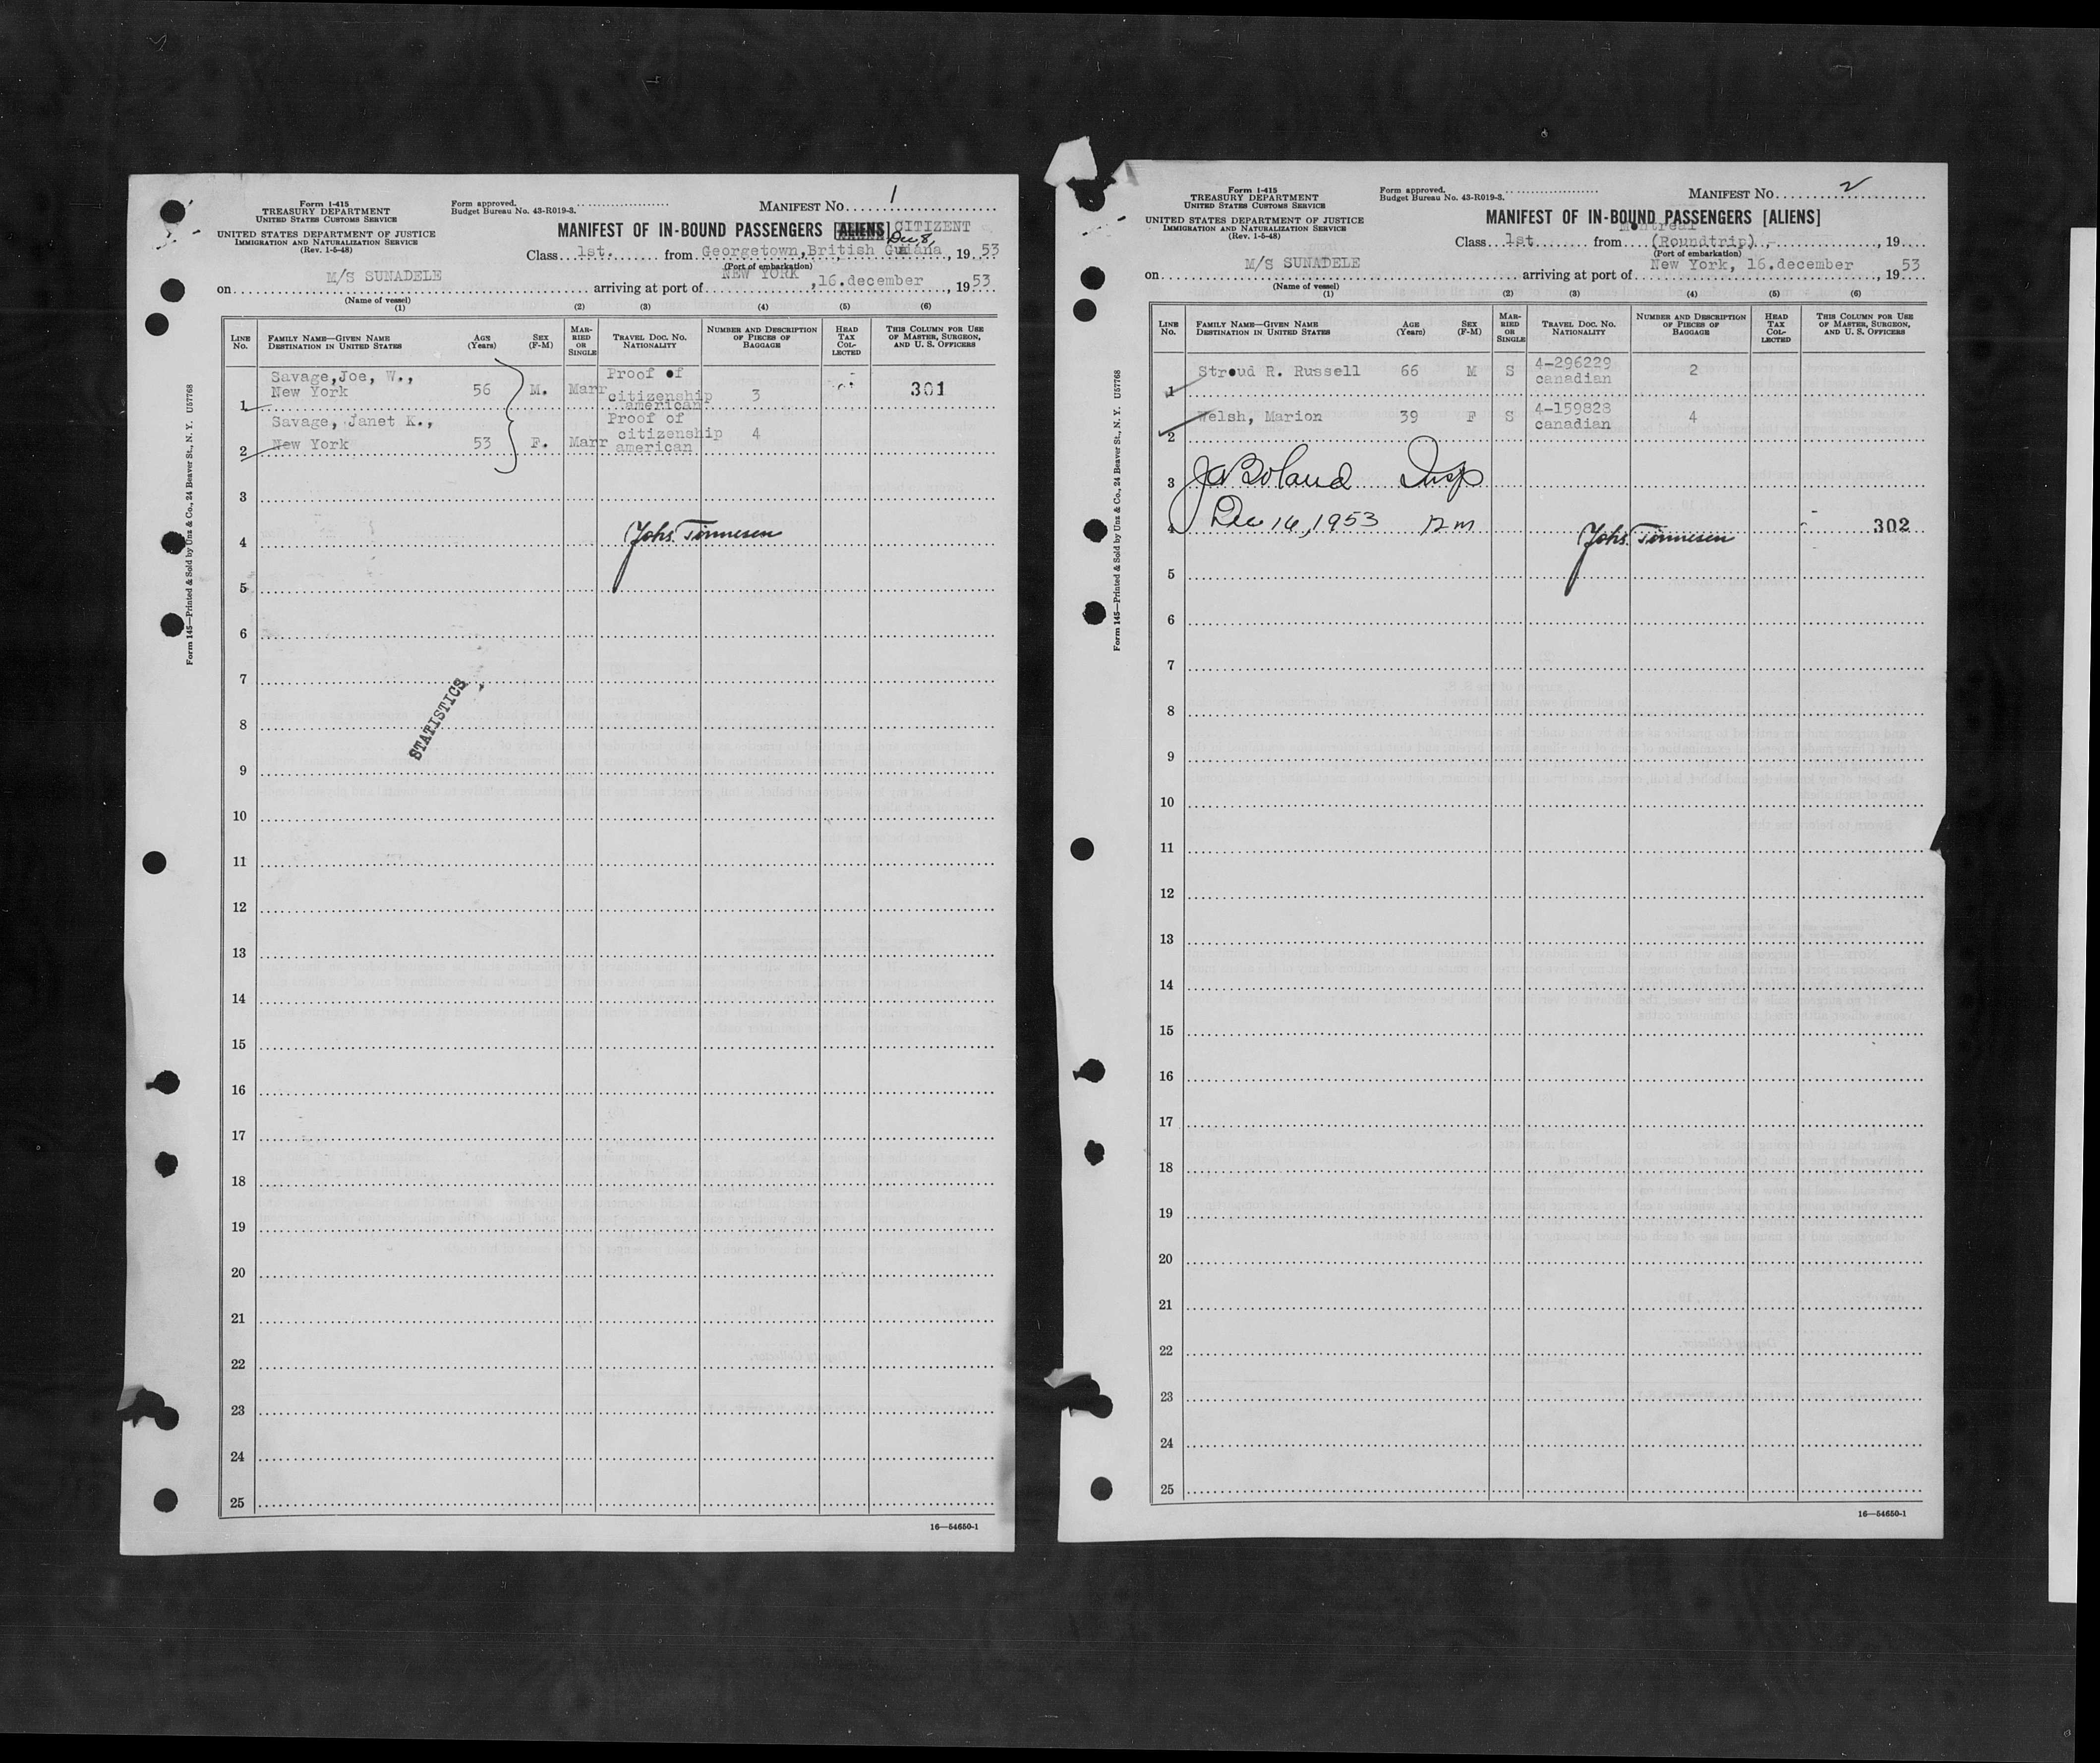 Form I-415
TREASURY DEPARTMENT
UNITED STATES CUSTOMS SERVICE
UNITED STATES DEPARTMENT OF JUSTICE
IMMIGRATION AND NATURALIZATION SERVICE
(Rev. 1-5-48)
Form approved.
Budget Bureau No. 43-R019-3.
MANIFEST No. 1
MANIFEST OF IN-BOUND PASSENGERS [ALIENS] CITIZENT
Dec, 8,
Class 1st. from Georgetown, British Guiana, 1953
(Port of embarkation)
on M/S SUNADELE arriving at port of NEW YORK, 16.december, 1953
(Name of vessel)
(1) (2) (3) (4) (5) (6)
LINE No. FAMILY NAME—GIVEN NAME DESTINATION IN UNITED STATES AGE (Years) SEX (F-M) MARRIED OR SINGLE TRAVEL DOC. No. NATIONALITY NUMBER AND DESCRIPTION OF PIECES OF BAGGAGE HEAD TAX COLLECTED THIS COLUMN FOR USE OF MASTER, SURGEON, AND U. S. OFFICERS
1 Savage,Joe, W., New York 56 M. Marr Proof of citizenship american 3 301
2 Savage, Janet K., New York 53 F. Marr Proof of citizenship american 4
3
4 Johs. Tönnesen
5
6
7
STATISTICS
8
9
10
11
12
13
14
15
16
17
18
19
20
21
22
23
24
25
16—54650-1
Form 145—Printed & Sold by Unz & Co., 24 Beaver St., N. Y. U57768
Form I-415
TREASURY DEPARTMENT
UNITED STATES CUSTOMS SERVICE
UNITED STATES DEPARTMENT OF JUSTICE
IMMIGRATION AND NATURALIZATION SERVICE
(Rev. 1-5-48)
Form approved.
Budget Bureau No. 43-R019-3.
MANIFEST No. 2
MANIFEST OF IN-BOUND PASSENGERS [ALIENS]
Montreal
Class 1st from (Roundtrip) -, 19
(Port of embarkation)
on M/S SUNADELE arriving at port of New York, 16.december, 1953
(Name of vessel)
(1) (2) (3) (4) (5) (6)
LINE No. FAMILY NAME—GIVEN NAME DESTINATION IN UNITED STATES AGE (Years) SEX (F-M) MARRIED OR SINGLE TRAVEL DOC. No. NATIONALITY NUMBER AND DESCRIPTION OF PIECES OF BAGGAGE HEAD TAX COLLECTED THIS COLUMN FOR USE OF MASTER, SURGEON, AND U. S. OFFICERS
1 Stroud R. Russell 66 M S 4-296229 canadian 2
2 Welsh, Marion 39 F S 4-159828 canadian 4
3 Boland Insp
4 Dec 16, 1953 12 m Johs. Tönnesen 302
5
6
7
8
9
10
11
12
13
14
15
16
17
18
19
20
21
22
23
24
25
16—54650-1
Form 145—Printed & Sold by Unz & Co., 24 Beaver St., N. Y. U57768